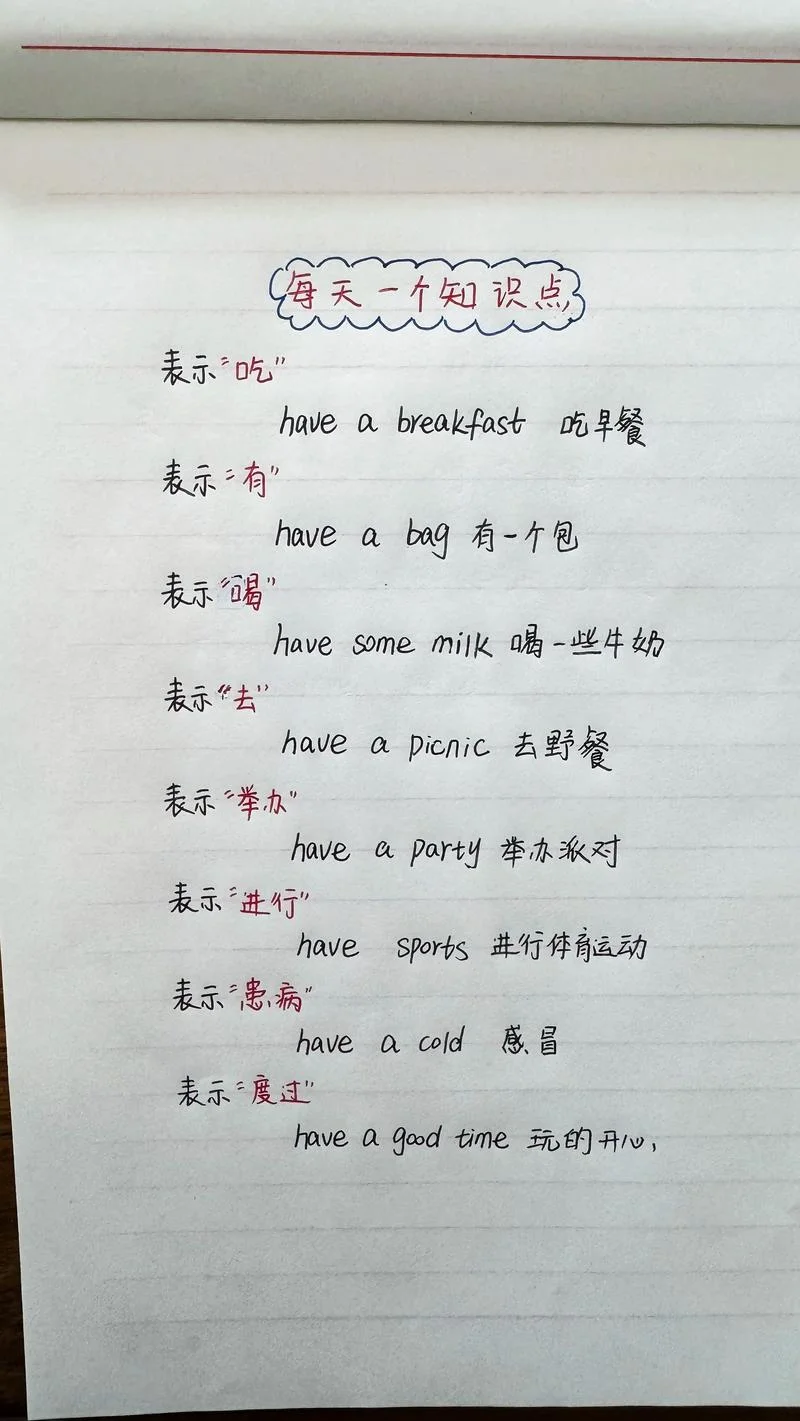 每天一个知识点
表示“吃”
have a breakfast 吃早餐
表示“有”
have a bag 有一个包
表示“喝”
have some milk 喝一些牛奶
表示“去”
have a picnic 去野餐
表示“举办”
have a party 举办派对
表示“进行”
have sports 进行体育运动
表示“患病”
have a cold 感冒
表示“度过”
have a good time 玩的开心,